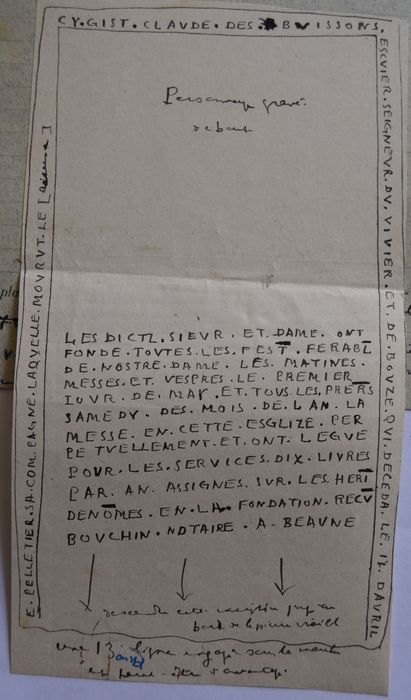 CY.GIST.CLAUDE.DES.BVISSONS.
ESCVIER.SEIGNEVR.DV.VIVIER.ET.DE.BOVZE.QVI.DECEDA.LE.12.DAVRIL
E.PELLETIER.SA.COMPAGNE.LAQVELLE.MOVRVT.LE
Personnage gravé
debout
LES DICTZ.SIEVR.ET.DAME.ONT
FONDE.TOVTES.LES.FEST.FERABL
DE.NOSTRE.DAME.LES.MATINES.
MESSES.ET.VESPRES.LE.PREMIER
IOVR.DE.MAY.ET.TOVS.LES.PRERS
SAMEDY.DES.MOIS.DE.LAN.LA
MESSE.EN.CETTE.ESGLIZE.PER
PETVELLEMENT.ET.ONT.LEGVE
POVR.LES.SERVICES.DIX.LIVRES
PAR.AN.ASSIGNES.SVR.LES.HERI
DENOMES.EN.LA.FONDATION.RECV
BOVCHIN.NOTAIRE.A.BEAVNE
descendre cette inscription jusqu'au
bord de la pierre
une 13e ligne engagée sous le
et peut-être davantage.